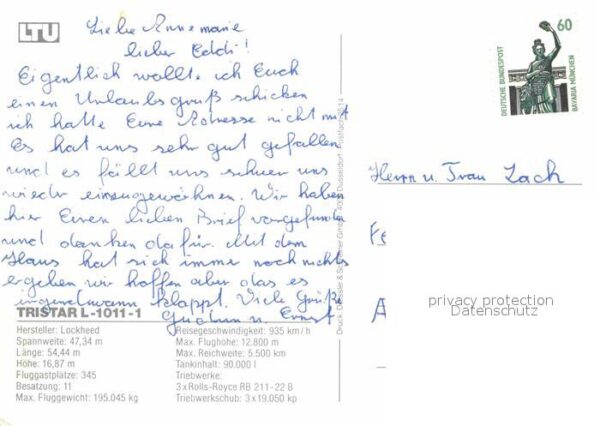 LTU
Liebe Annemarie
lieber Eddi!
Eigentlich wollte ich Euch
einen Urlaubsgruß schicken
ich hatte Eure Adresse nicht mit
Es hat uns sehr gut gefallen
und es fällt uns schwer uns
wieder einzugewöhnen. Wir haben
hier Euren lieben Brief vorgefunden
und danken dafür. Mit dem
Haus hat sich immer noch nichts
ergeben wir hoffen aber das es
irgendwann klappt. Viele Grüße
Gudrun u. Ernst
TRISTAR L-1011-1
Hersteller: Lockheed
Spannweite: 47,34 m
Länge: 54,44 m
Höhe: 16,87 m
Fluggastplätze: 345
Besatzung: 11
Max. Fluggewicht: 195.045 kg
Reisegeschwindigkeit: 935 km/h
Max. Flughöhe: 12.800 m
Max. Reichweite: 5.500 km
Tankinhalt: 90.000 l
Triebwerke:
3x Rolls-Royce RB 211-22 B
Triebwerkschub: 3x19.050 kp
60
DEUTSCHE BUNDESPOST
BAVARIA MÜNCHEN
Herrn u. Frau Zach
privacy protection
Datenschutz